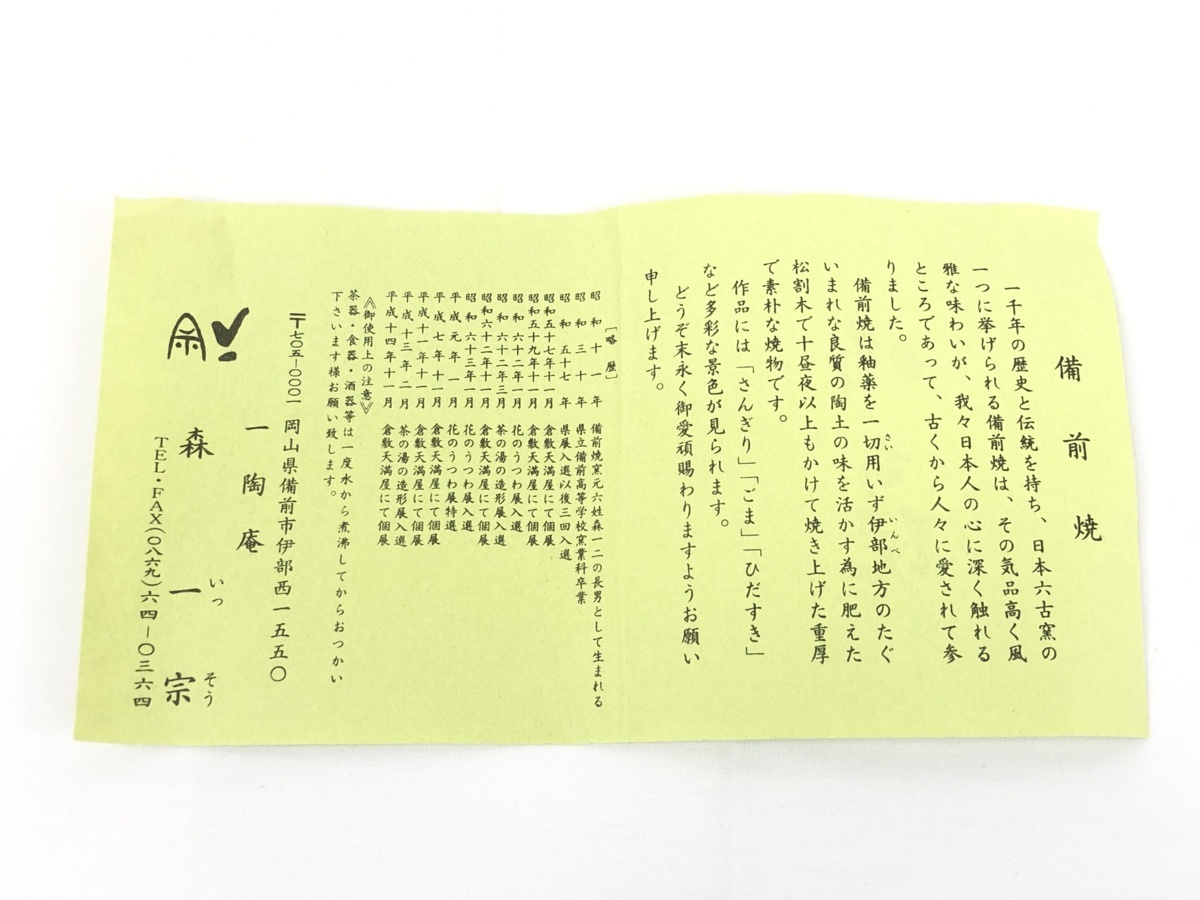 備前焼
一千年の歴史と伝統を持ち、日本六古窯の
一つに挙げられる備前焼は、その気品高く風
雅な味わいが、我々日本人の心に深く触れる
ところであって、古くから人々に愛されて参
りました。
備前焼は釉薬を一切用いず伊部地方のたぐ
さい
いんべ
いまれな良質の陶土の味を活かす為に肥えた
松割木で十昼夜以上もかけて焼き上げた重厚
で素朴な焼物です。
作品には「さんぎり」「ごま」「ひだすき」
など多彩な景色が見られます。
どうぞ末永く御愛頑賜わりますようお願い
申し上げます。
[略歴]
昭和十一年 備前焼窯元六姓森一二の長男として生まれる
昭和三十年 県立備前高等学校窯業科卒業
昭和五十七年 県展入選以後三回入選
昭和五十七年十一月 倉敷天満屋にて個展
昭和五十九年十一月 倉敷天満屋にて個展
昭和六十二年一月 花のうつわ展入選
昭和六十二年三月 茶の湯の造形展入選
昭和六十二年十一月 倉敷天満屋にて個展
昭和六十三年一月 花のうつわ展入選
平成元年一月 花のうつわ展特選
平成七年十一月 倉敷天満屋にて個展
平成十一年十一月 倉敷天満屋にて個展
平成十三年二月 茶の湯の造形展入選
平成十四年十一月 倉敷天満屋にて個展
《御使用上の注意》
茶器・食器・酒器等は一度水から煮沸してからおつかい
下さいます様お願い致します。
〒七〇五-〇〇〇一 岡山県備前市伊部西一五五〇
一陶庵
森一宗
いっそう
TEL・FAX(〇八六九)六四-〇三六四